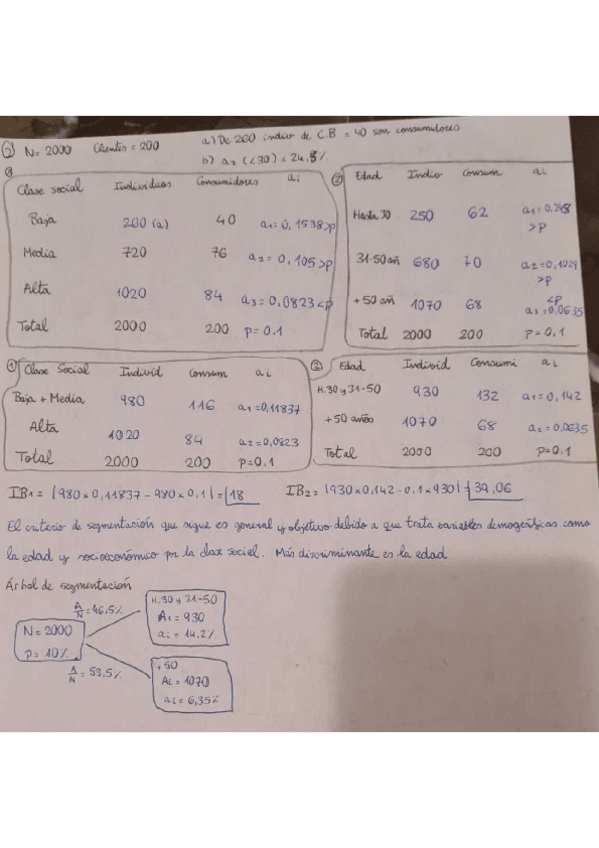 6) N= 2000 Clientes = 200 a) De 260 indiv de C.B = 40 son consumidores
b) a₂ (<30) = 24.8%
① Clase social Individuos Consumidores ai
Baja 260 (a) 40 a₁ = 0,1538 >p
Media 720 76 a₂ = 0,105 >p
Alta 1020 84 a₃ = 0,0823 <p
Total 2000 200 p= 0.1
② Edad Indiv Consum ai
Hasta 30 250 62 a₁ = 0,248 >p
31-50 añ 680 70 a₂ = 0,1029 >p
+50 añ 1070 68 <p a₃ = 0,0635
Total 2000 200 p= 0.1
① Clase Social Individ Consum ai
Baja + Media 980 116 a₁ = 0,11837
Alta 1020 84 a₂ = 0,0823
Total 2000 200 p=0.1
② Edad Individ Consumi ai
H.30 y 31-50 930 132 a₁ = 0,142
+50 años 1070 68 a₂ = 0,0635
Total 2000 200 p=0.1
IB₁ = |980 x 0,11837 - 980 x 0.1| = 18 IB₂ = |930 x 0.142 - 0.1 x 930| = 39,06
El criterio de segmentación que sigue es general y objetivo debido a que trata variables demográficas como
la edad y socioeconómico por la clase social. Más discriminante es la edad
Árbol de segmentación
N = 2000
p = 10%
A/N = 46,5%
H.30 y 31-50
A₁ = 930
ai = 14.2%
A/N = 53.5%
+50
Ai = 1070
ai = 6,35%